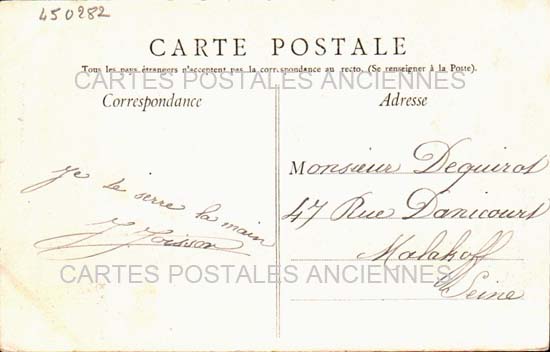 450282
CARTE POSTALE
Tous les pays étrangers n'acceptent pas la correspondance au recto. (Se renseigner à la Poste).
CARTES POSTALES ANCIENNES
Correspondance
Adresse
Je te serre la main
Monsieur Dequirot
47 Rue Danicourt
Malakoff
Seine
CARTES POSTALES ANCIENNES